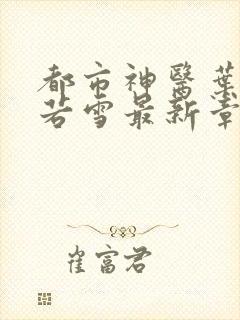 都市神醫葉
若雪最新章
崔富君